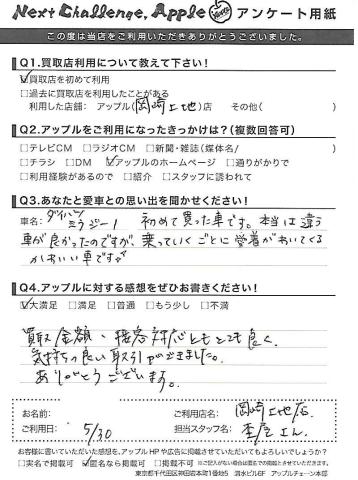 Next Challenge, Apple アンケート用紙
この度は当店をご利用いただきありがとうございました。
Q1.買取店利用について教えて下さい!
☑買取店を初めて利用
□過去に買取店を利用したことがある
利用した店舗: アップル(岡崎上地)店 その他( )
Q2.アップルをご利用になったきっかけは?(複数回答可)
□テレビCM □ラジオCM □新聞・雑誌(媒体名/ )
□チラシ □DM ☑アップルのホームページ □通りがかりで
□利用経験があるので □紹介 □スタッフに誘われて
Q3.あなたと愛車との思い出を聞かせください!
車名: ダイハツ ミラジーノ 初めて買った車です。本当は違う
車が良かったのですが、乗っていくごとに愛着がわいてくる
かわいい車ですが
Q4.アップルに対する感想をぜひお書きください!
☑大満足 □満足 □普通 □もう少し □不満
買取金額・接客対応ともとても良く、
気持ちの良い取引ができました。
ありがとうございます。
お名前: ご利用店名: 岡崎上地店
ご利用日: 5/30 担当スタッフ名: さん
お客様に書いていただいた感想を、アップルHPや広告に掲載させていただいてもよろしいでしょうか?
□実名で掲載可 ☑匿名なら掲載可 □掲載不可 ※ご記入がない場合は匿名での掲載とさせていただきます。
東京都千代田区神田岩本町1番地5 清水ビル6F アップルチェーン本部